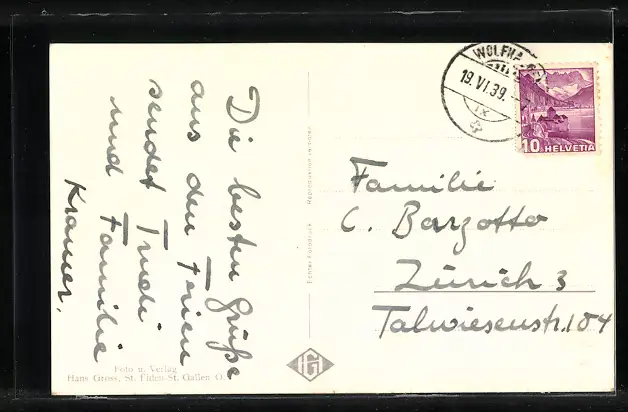 Die besten Grüße
aus den Ferien
sendet Trudi
und Familie
Kramer.
Foto u. Verlag
Hans Gross, St. Fiden-St. Gallen O.
Echter Fotodruck
HG
WOLFHA
19.VI.39.
IX
10 HELVETIA
Familie
C. Barzotto
Zürich 3
Talwiesenstr. 104